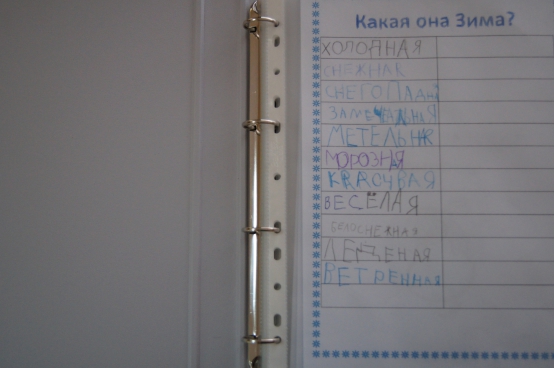 Какая она Зима?
ХОЛОДНАЯ
СНЕЖНАЯ
СНЕГОПАДНАЯ
ЗАМЕЧАТЕЛЬНАЯ
МЕТЕЛЬНАЯ
МОРОЗНАЯ
КРАСИВАЯ
ВЕСЁЛАЯ
БЕЛОСНЕЖНАЯ
ЛЕДЕНАЯ
ВЕТРЕННАЯ